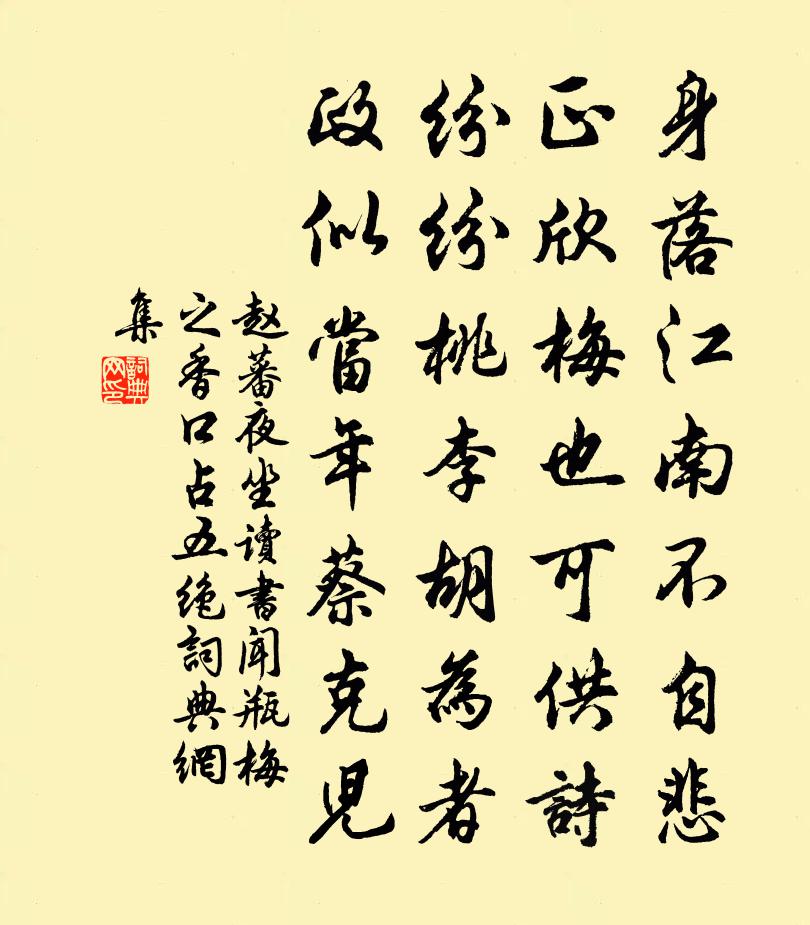 身落江南不自悲
正欣梅也可供詩
紛紛桃李胡為者
政似當年蔡克児
赵蕃夜坐讀書聞瓶梅
之香口占五絶詞典網
集
詞典
网印